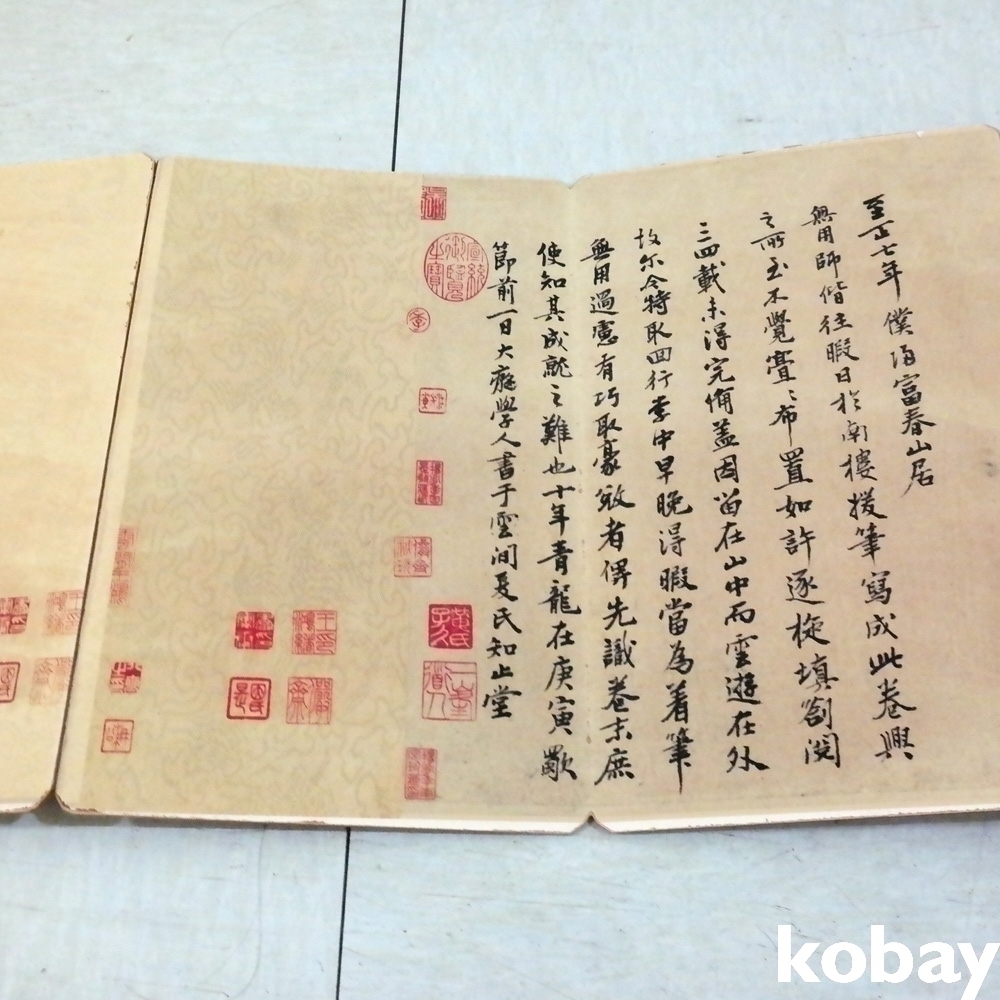 至正七年僕歸富春山居
無用師偕往暇日於南樓援筆寫成此卷興
之所至不覺亹〻布置如許逐旋填劄閱
三四載未得完備蓋因留在山中而雲遊在外
故尔今特取回行李中早晚得暇當為着筆
無用過慮有巧取豪敓者俾先識卷末庶
使知其成就之難也十年青龍在庚寅歜
節前一日大癡學人書于雲間夏氏知止堂
宣統御覽之寶
kobay